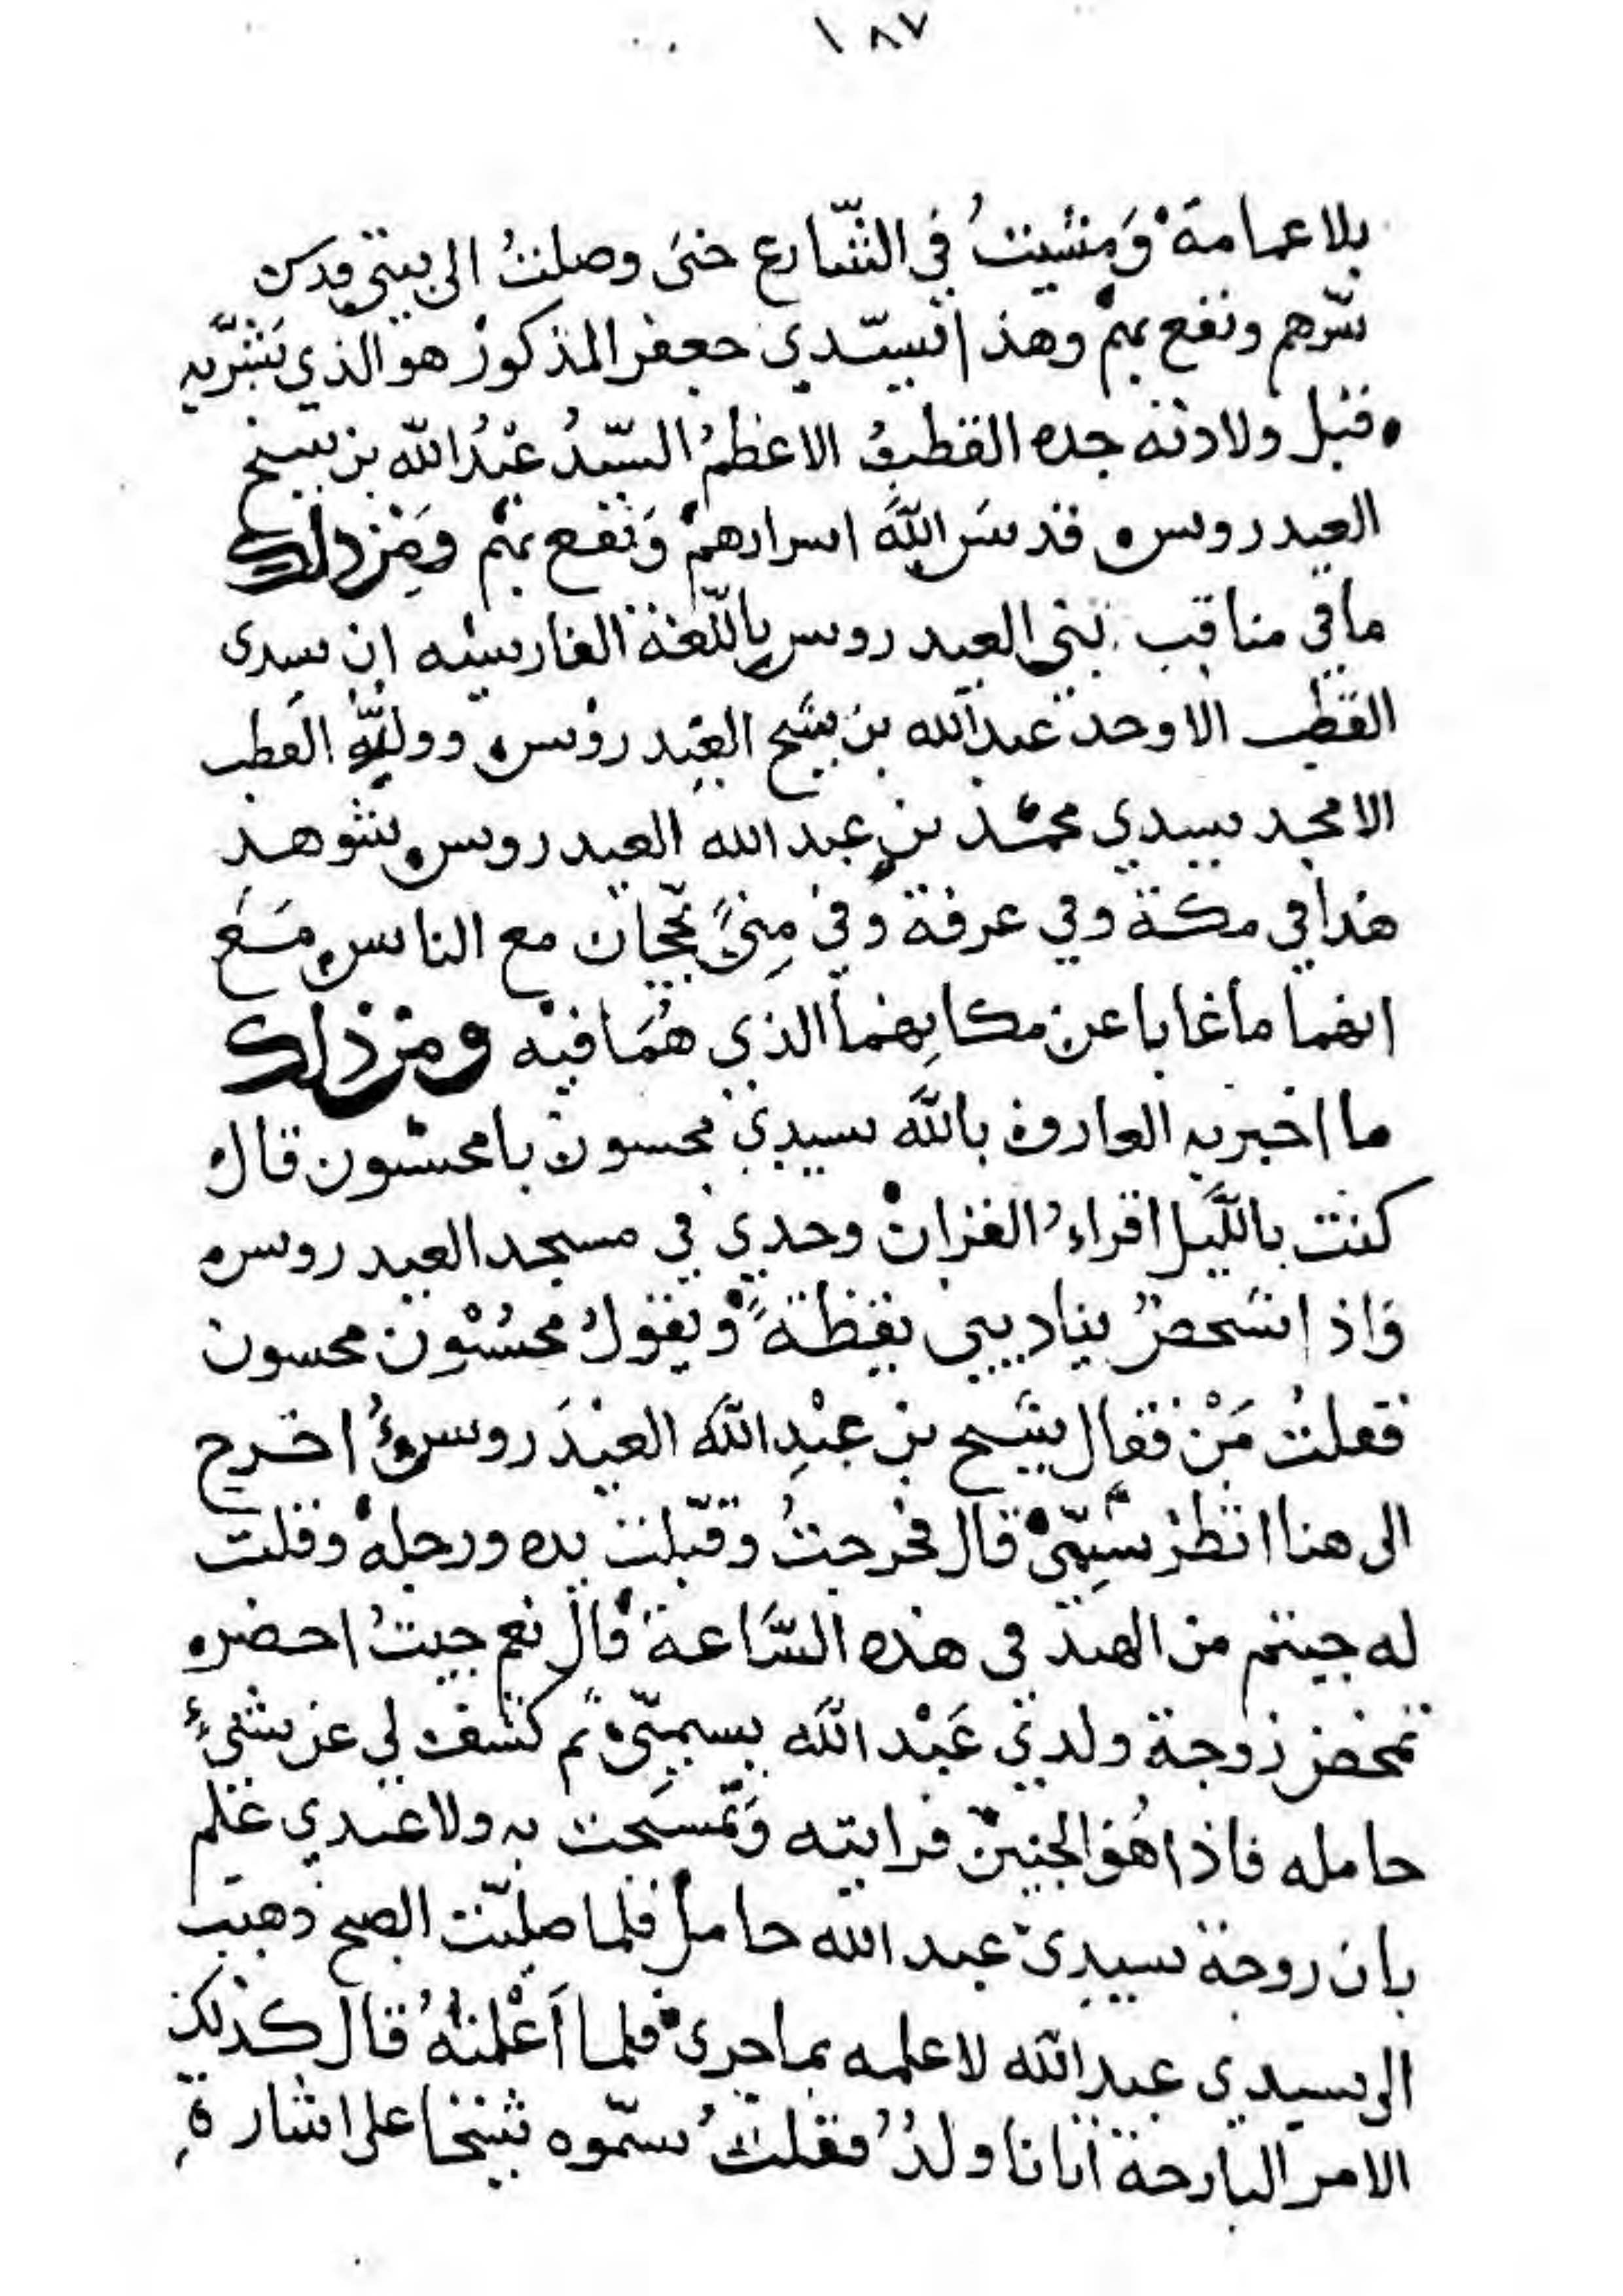 ١٨٧
بلا عمامة ومشيت في الشارع حتى وصلت الى بيتي قدس
سرهم ونفع بهم وهذا سيدي جعفر المذكور هو الذي بشر به
قبل ولادته جده القطب الاعظم السيد عبد الله بن شيخ
العيدروس قدس الله اسرارهم ونفع بهم ومن ذلك
ما في مناقب بني العيدروس باللغة الفارسيه ان سيدى
القطب الاوحد عبد الله بن شيخ العيدروس وولده القطب
الامجد سيدي محمد بن عبد الله العيدروس شوهد
هذا في مكة وفي عرفة وفي منى يحجان مع الناس مع
انهما ما غابا عن مكانهما الذي هما فيه ومن ذلك
ما اخبر به العارف بالله سيدي محسون بامحسون قال
كنت بالليل اقراء القران وحدي في مسجد العيدروس
واذا شخص يناديني يقظة ويقول محسون محسون
فقلت من فقال شيخ بن عبد الله العيدروس اخرج
الى هنا انظر سميي قال فخرجت وقبلت يده ورجله وقلت
له جيتم من الهند في هذه الساعة قال نعم جيت احضره
تمخض زوجة ولدي عبد الله بسميي ثم كشف لي عن شيء
حامله فاذا هو الجنين فرايته وتمسحت به ولا عندي علم
بان زوجة سيدي عبد الله حامل فلما صليت الصبح ذهبت
الى سيدي عبد الله لاعلمه بما جرى فلما اعلمته قال كذلك
الامر البارحة اتانا ولد فقلت سموه شيخا على اشارة